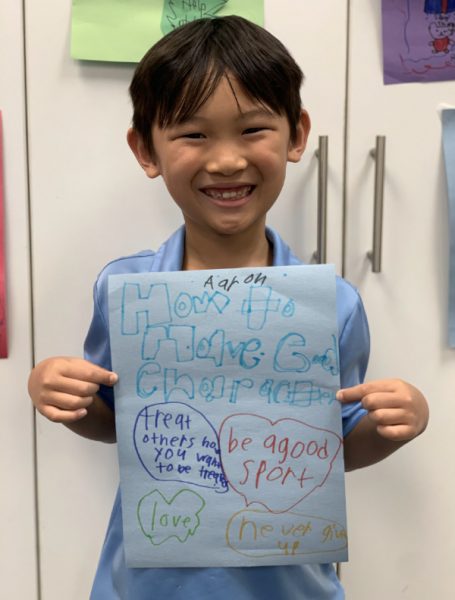 Help
Aaron
How to
Make Good
Character
treat
others how
you want
to be treated
be a good
sport
love
never give
up